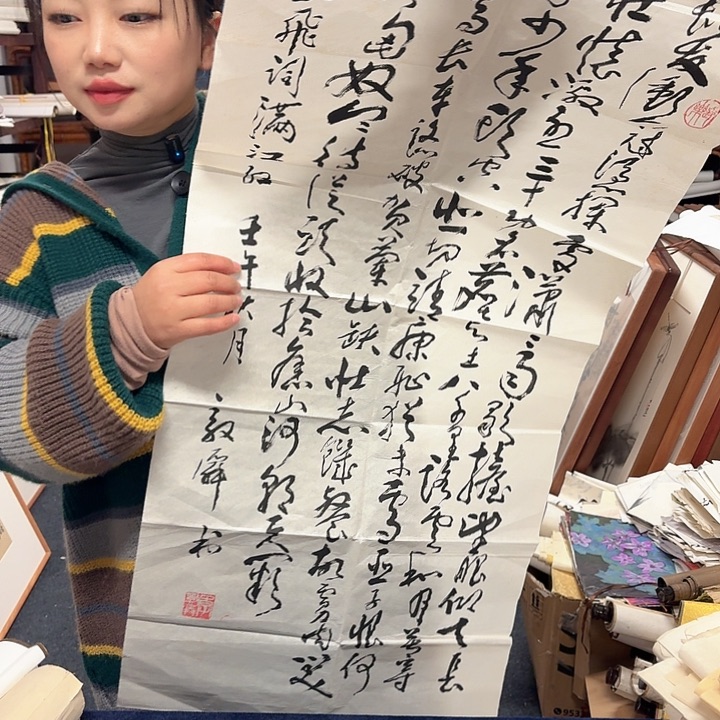 发冲冠凭栏处潇々雨歇抬望眼仰天长
壮怀激烈三十功名尘与土八千里路云和月莫等
少年头空悲切靖康耻犹未雪臣子恨何
驾长车踏破贺兰山缺壮志饥餐胡虏肉笑
匈奴血待从头收拾旧山河朝天阙
飛词满江红 壬午秋月
书